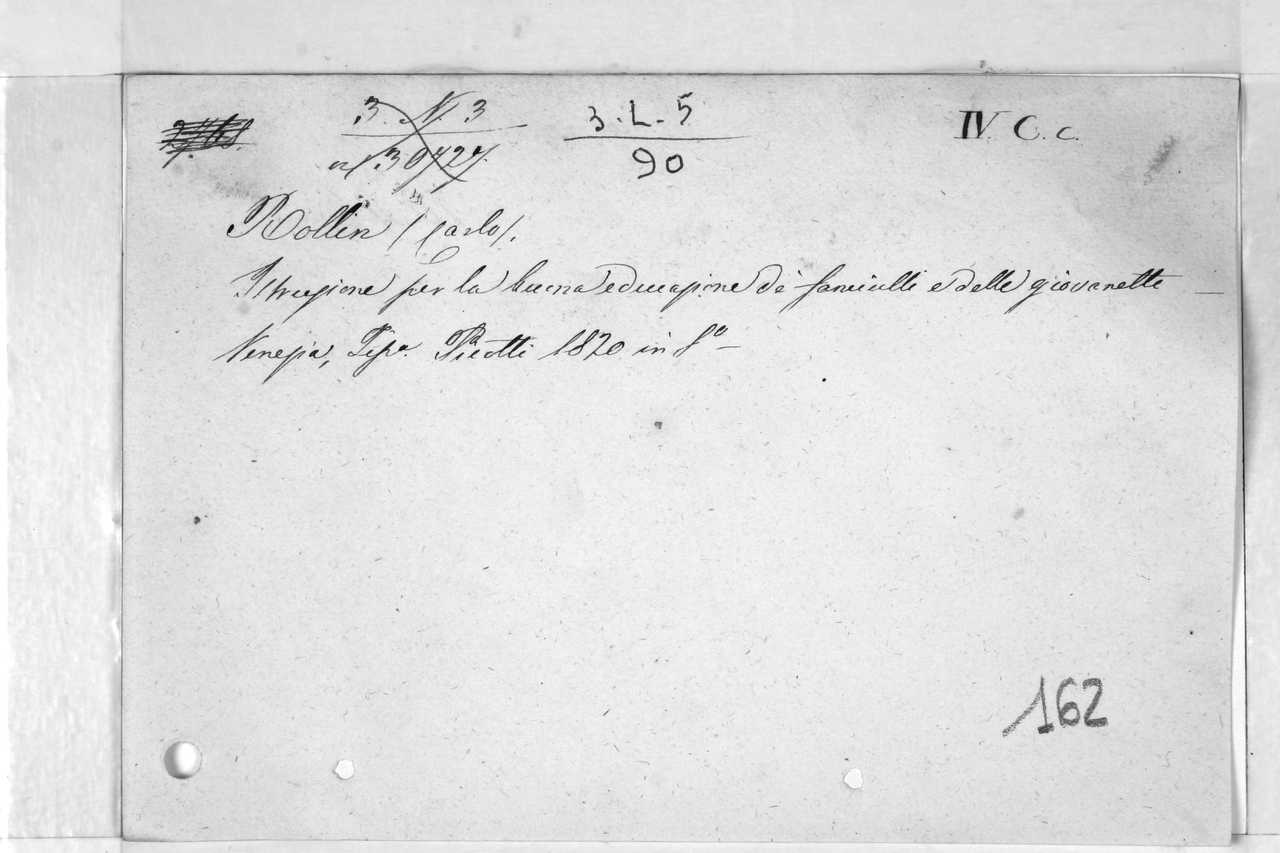 3. N. 3
3. L. 5
IV. C. c.
90
Rollin (Carlo).
Istruzione per la buona educazione de' fanciulli e delle giovanette —
Venezia, Tipª. Picotti 1820 in 8º —
162